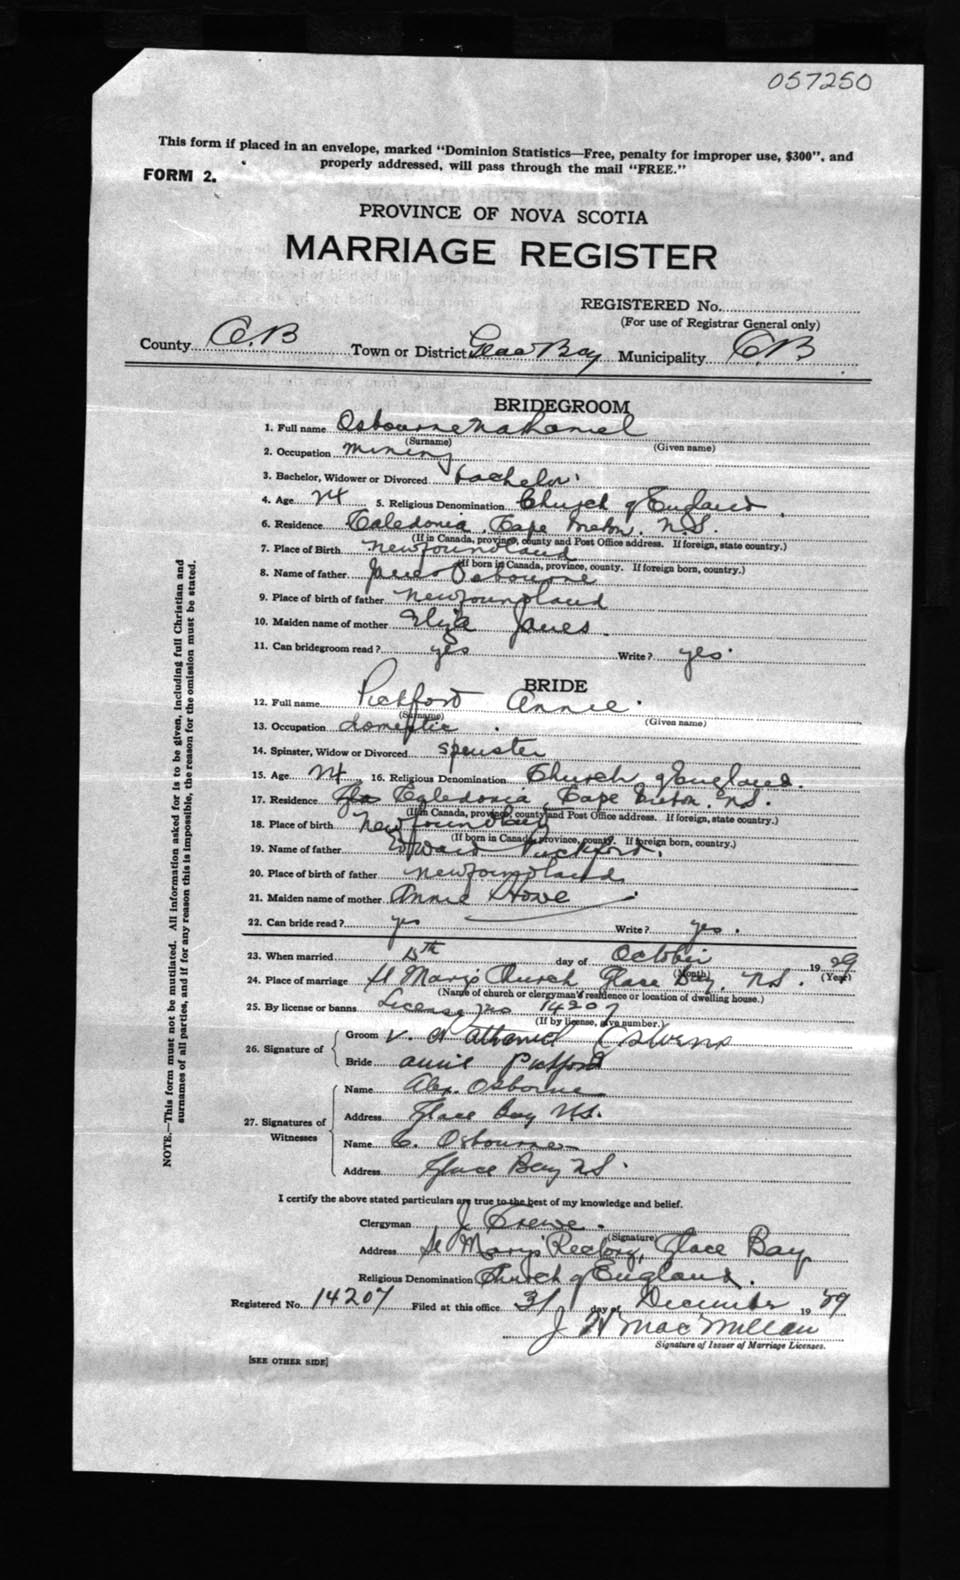 057250
This form if placed in an envelope, marked "Dominion Statistics—Free, penalty for improper use, $300", and
properly addressed, will pass through the mail "FREE."
FORM 2.
PROVINCE OF NOVA SCOTIA
MARRIAGE REGISTER
REGISTERED No.
(For use of Registrar General only)
County C.B Town or District Glace Bay Municipality C.B.
BRIDEGROOM
1. Full name Osbourne Nathaniel
(Surname) (Given name)
2. Occupation mining
3. Bachelor, Widower or Divorced bachelor
4. Age 24 5. Religious Denomination Church of England
6. Residence Caledonia, Cape Breton, N.S.
(If in Canada, province, county and Post Office address. If foreign, state country.)
7. Place of Birth Newfoundland
(If born in Canada, province, county. If foreign born, country.)
8. Name of father Osbourne
9. Place of birth of father Newfoundland
10. Maiden name of mother Eliza
11. Can bridegroom read? yes Write? yes
BRIDE
12. Full name Pickford Annie
(Surname) (Given name)
13. Occupation domestic
14. Spinster, Widow or Divorced spinster
15. Age 24 16. Religious Denomination Church of England.
17. Residence Caledonia Cape Breton, N.S.
(If in Canada, province, county and Post Office address. If foreign, state country.)
18. Place of birth
(If born in Canada, province, county. If foreign born, country.)
19. Name of father Edward Pickford
20. Place of birth of father Newfoundland
21. Maiden name of mother Annie Howe
22. Can bride read? yes Write? yes.
23. When married day of October 19 29
(Month) (Year)
24. Place of marriage St Mary's Church Glace Bay, N.S.
(Name of church or clergyman's residence or location of dwelling house.)
25. By license or banns License No 14207
(If by license, give number.)
26. Signature of
Groom Nathaniel
Bride Annie Pickford
27. Signatures of Witnesses
Name Alex. Osborne
Address Glace Bay N.S.
Name C. Osbourne
Address Glace Bay N.S.
I certify the above stated particulars are true to the best of my knowledge and belief.
Clergyman J Crewe.
(Signature)
Address St Mary's Rectory, Glace Bay
Religious Denomination Church of England.
Registered No. 14207 Filed at this office 31 day of December 19 29
J MacMillan
Signature of Issuer of Marriage Licenses.
[SEE OTHER SIDE]
NOTE.—This form must not be mutilated. All information asked for is to be given, including full Christian and
surnames of all parties, and if for any reason this is impossible, the reason for the omission must be stated.